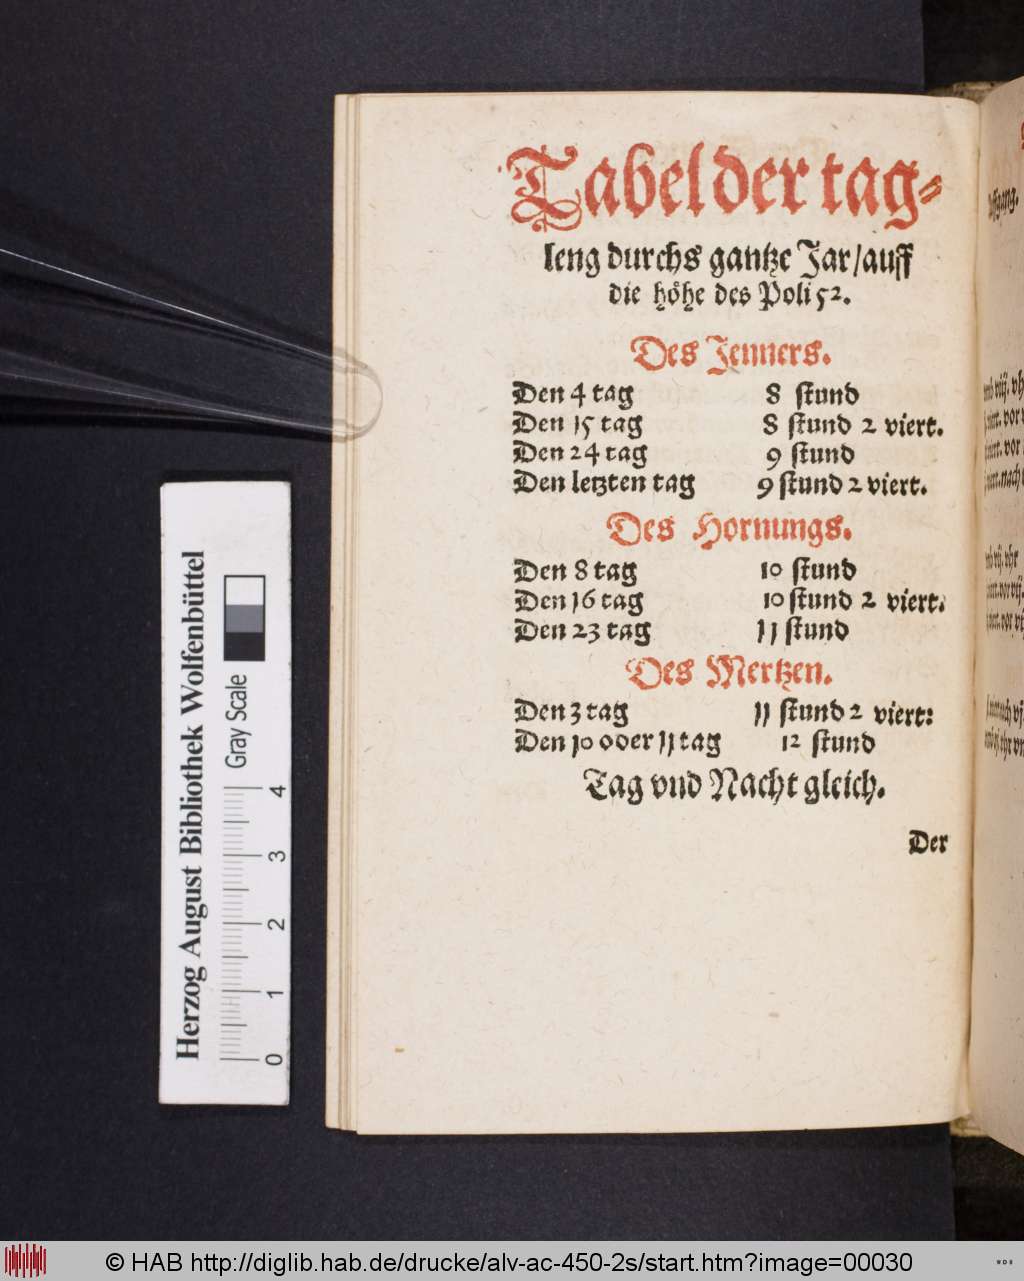 Tabel der tag-
leng durchs gantze Jar/auff
die höhe des Poli 52.
Des Jenners.
Den 4 tag 8 stund
Den 15 tag 8 stund 2 viert.
Den 24 tag 9 stund
Den letzten tag 9 stund 2 viert.
Des Hornungs.
Den 8 tag 10 stund
Den 16 tag 10 stund 2 viert.
Den 23 tag 11 stund
Des Mertzen.
Den 3 tag 11 stund 2 viert:
Den 10 oder 11 tag 12 stund
Tag vnd Nacht gleich.
Der
Herzog August Bibliothek Wolfenbüttel
Gray Scale
0 1 2 3 4
© HAB http://diglib.hab.de/drucke/alv-ac-450-2s/start.htm?image=00030